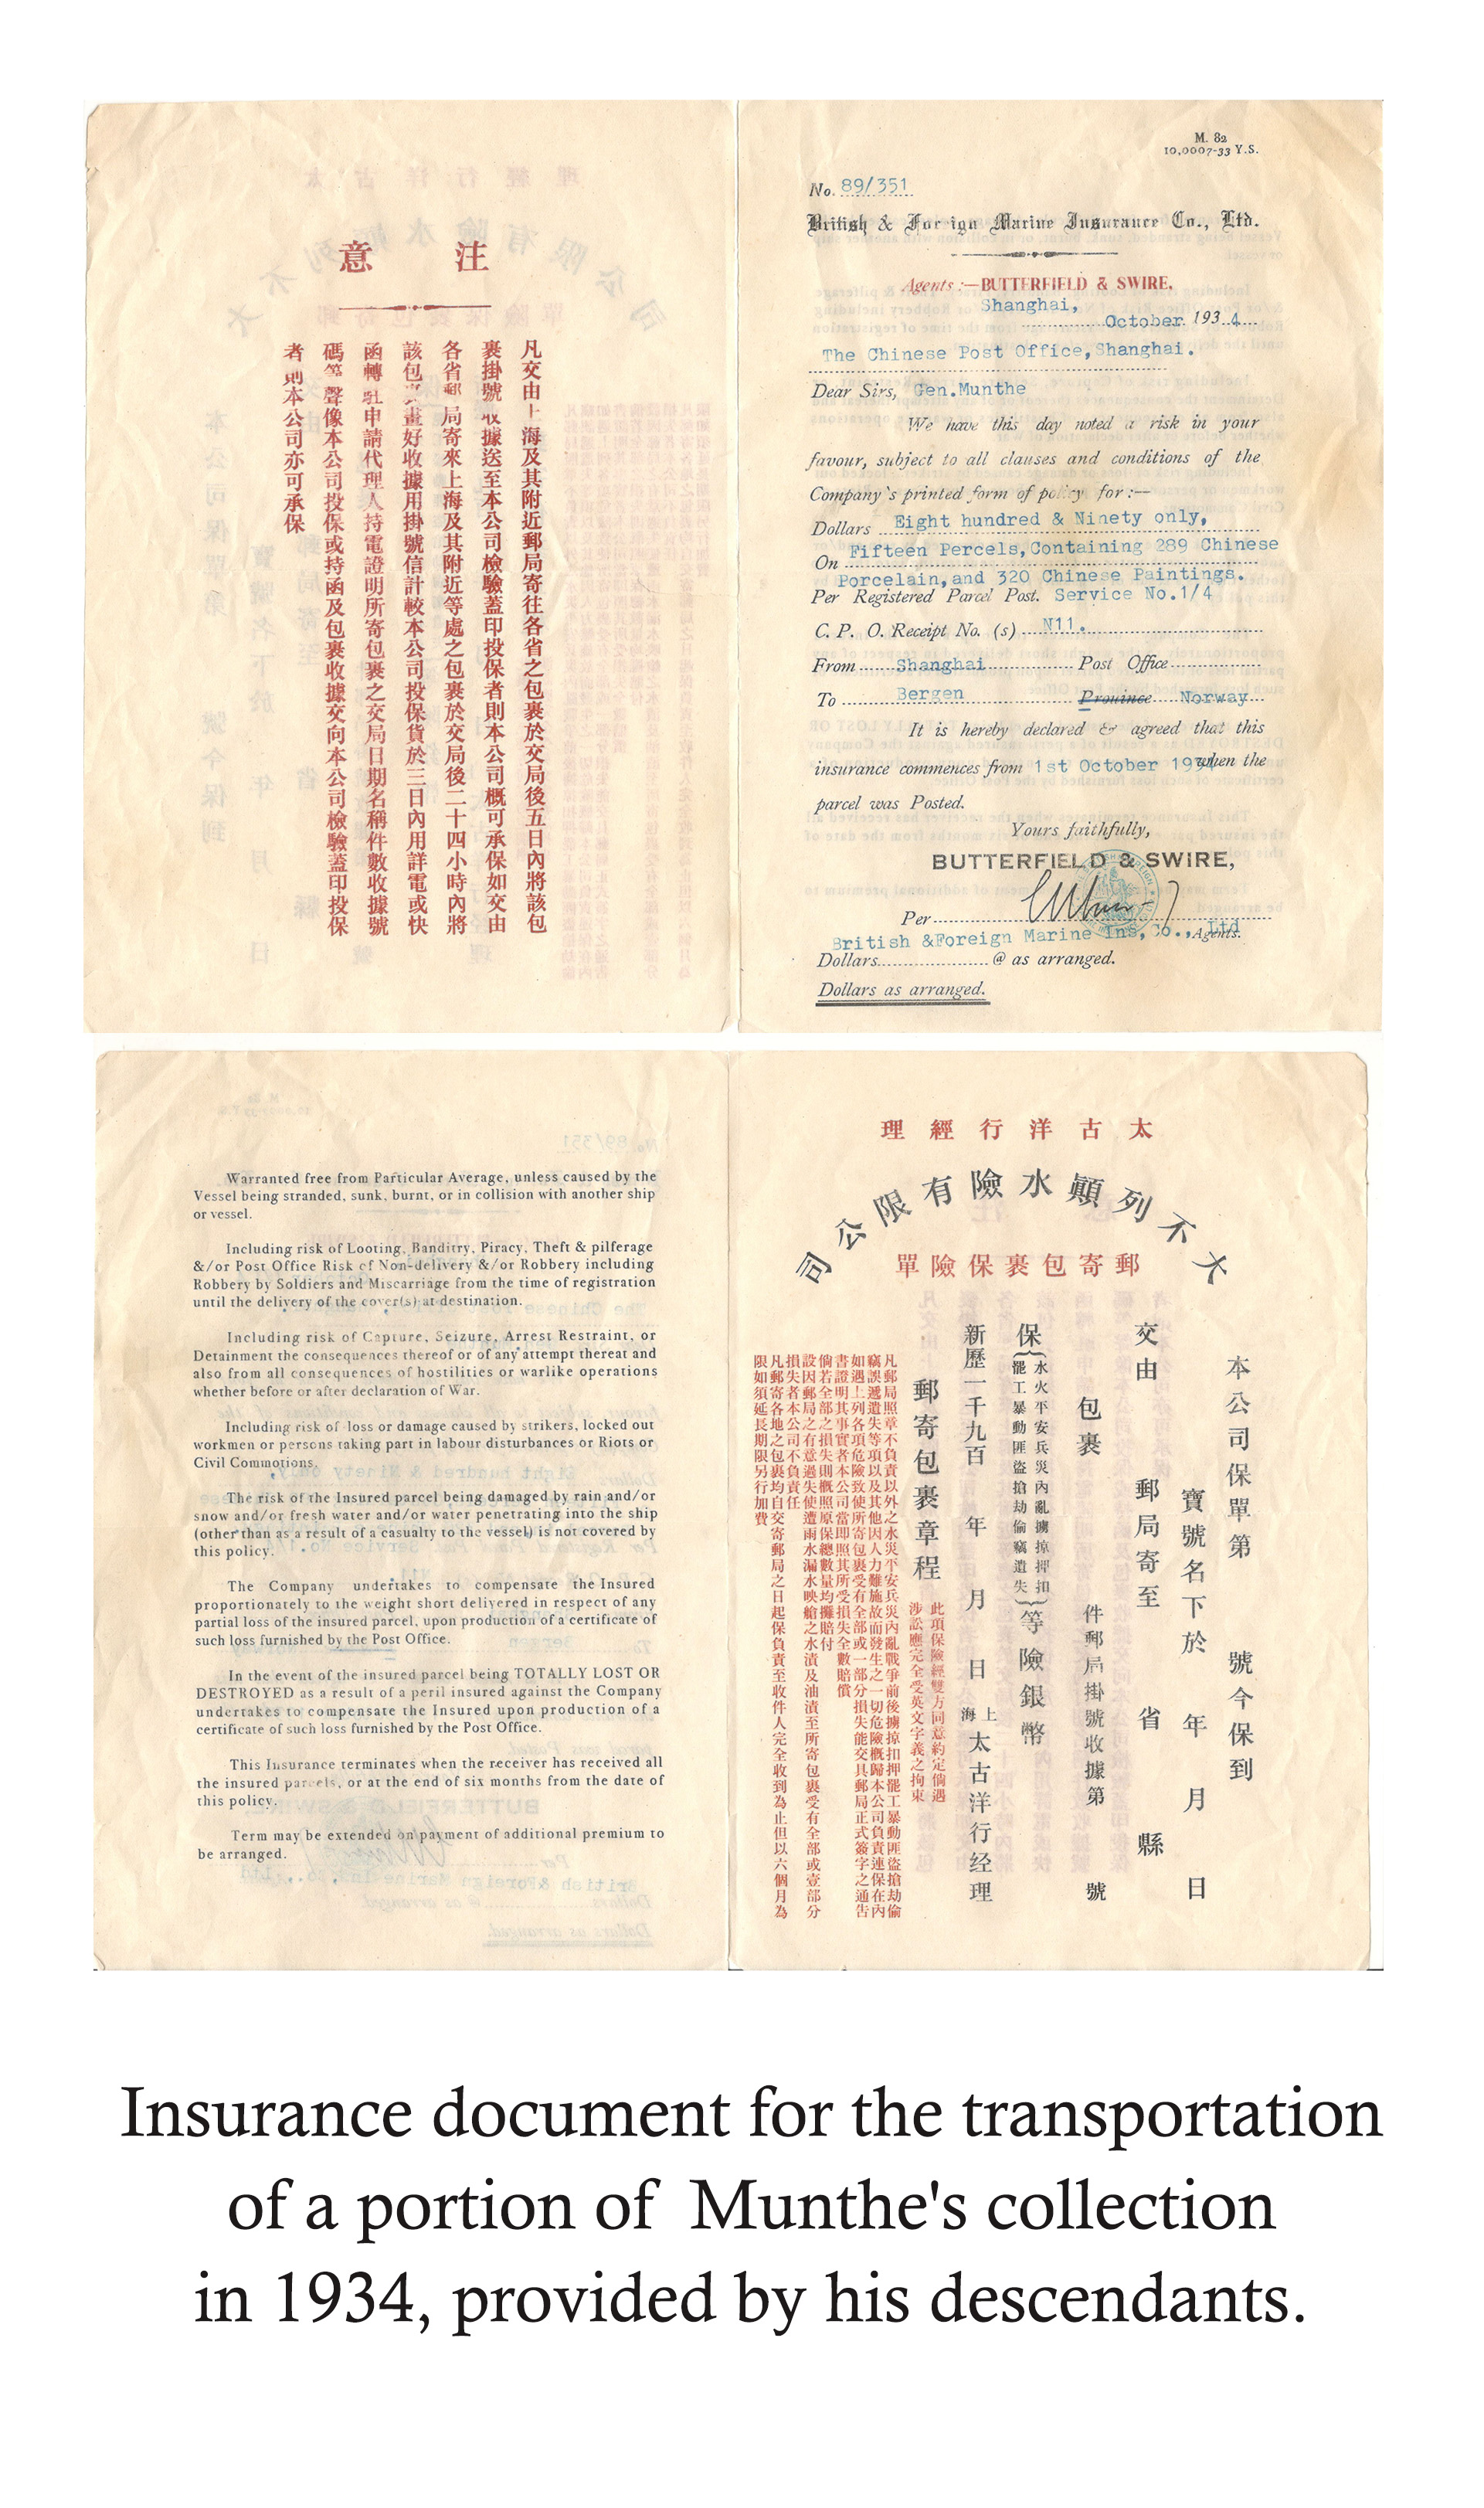 注意
凡交由上海及其附近郵局寄往各省之包裹於交局後五日內將該包
裹掛號收據送至本公司檢驗蓋印投保者則本公司概可承保如交由
各省郵局寄來上海及其附近等處之包裹於交局後二十四小時內將
該包畫好收據用掛號信計較本公司投保貨於三日內用詳電或快
函轉駐申請代理人持電證明所寄包裹之交局日期名稱件數收據號
碼等聲像本公司投保或持函及包裹收據交向本公司檢驗蓋印投保
者則本公司亦可承保
M. 82
10,0007-33 Y.S.
No. 89/351
British & Foreign Marine Insurance Co., Ltd.
Agents:—BUTTERFIELD & SWIRE,
Shanghai,
October 1934
The Chinese Post Office,Shanghai.
Dear Sirs, Gen.Munthe
We have this day noted a risk in your
favour, subject to all clauses and conditions of the
Company's printed form of policy for:—
Dollars Eight hundred & Ninety only,
On Fifteen Percels,Containing 289 Chinese
Porcelain,and 320 Chinese Paintings.
Per Registered Parcel Post. Service No.1/4
C. P. O. Receipt No. (s) N11.
From Shanghai Post Office
To Bergen Province Norway
It is hereby declared & agreed that this
insurance commences from 1st October 1934 when the
parcel was Posted.
Yours faithfully,
BUTTERFIELD & SWIRE,
Per
British &Foreign Marine Ins,Co.,Ltd Agents.
Dollars @ as arranged.
Dollars as arranged.
Warranted free from Particular Average, unless caused by the
Vessel being stranded, sunk, burnt, or in collision with another ship
or vessel.
Including risk of Looting, Banditry, Piracy, Theft & pilferage
&/or Post Office Risk of Non-delivery &/or Robbery including
Robbery by Soldiers and Miscarriage from the time of registration
until the delivery of the cover(s) at destination.
Including risk of Capture, Seizure, Arrest Restraint, or
Detainment the consequences thereof or of any attempt thereat and
also from all consequences of hostilities or warlike operations
whether before or after declaration of War.
Including risk of loss or damage caused by strikers, locked out
workmen or persons taking part in labour disturbances or Riots or
Civil Commotions.
The risk of the Insured parcel being damaged by rain and/or
snow and/or fresh water and/or water penetrating into the ship
(other than as a result of a casualty to the vessel) is not covered by
this policy.
The Company undertakes to compensate the Insured
proportionately to the weight short delivered in respect of any
partial loss of the insured parcel, upon production of a certificate of
such loss furnished by the Post Office.
In the event of the insured parcel being TOTALLY LOST OR
DESTROYED as a result of a peril insured against the Company
undertakes to compensate the Insured upon production of a
certificate of such loss furnished by the Post Office.
This Insurance terminates when the receiver has received all
the insured parcels, or at the end of six months from the date of
this policy.
Term may be extended on payment of additional premium to
be arranged.
太古洋行經理
大不列顛水險有限公司
郵寄包裹保險單
本公司保單第 號今保到
寶號名下於 年 月 日
交由 郵局寄至 省 縣
包裹 件郵局掛號收據第 號
保{水火平安兵災內亂擄掠押扣
罷工暴動匪盜搶劫偷竊遺失}等險銀幣
新歷一千九百 年 月 日 上海太古洋行经理
郵寄包裹章程
此項保險經雙方同意約定倘遇
涉訟應完全受英文字義之拘束
凡郵局照章不負責以外之水災平安兵災內亂戰爭前後擄掠扣押罷工暴動匪盜搶劫偷
竊誤遞遺失等項以及其他因人力難施故而發生之一切危險概歸本公司負責連保在內
如遇上列各項危險致使所寄包裹受有全部或一部分損失能交具郵局正式簽字之通告
書證明其事實者本公司當即照其所受損失全數賠償
倘若全部之損失則概照原保總數量均攤賠付
設因郵局之有意過失使遭雨水漏水映艙之水漬及油漬至所寄包裹受有全部或壹部分
損失者本公司不負責任
凡郵寄各地之包裹均自交寄郵局之日起保負責至收件人完全收到為止但以六個月為
限如須延長期限另行加費
Insurance document for the transportation
of a portion of Munthe's collection
in 1934, provided by his descendants.